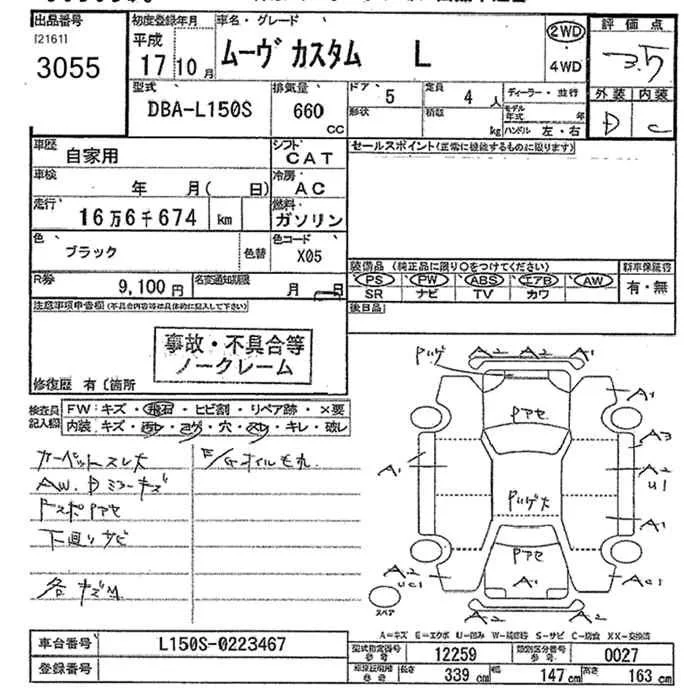 出品番号 初度登録年月 車名・グレード 2WD 評価点
[2161] 平成 ムーヴ カスタム L ・ 3.5
3055 17年 10月 4WD 外装 内装
型式 排気量 ドア 5 定員 4人 ディーラー・並行 D C
DBA-L150S 660 CC 形状 積載 kg モデル年式 年 ハンドル 左・右
車歴 自家用 シフト CAT セールスポイント(正常に機能するものに限ります)
車検 年 月( 日) 冷房 AC
走行 16万6千674 km 燃料 ガソリン
色 ブラック 色替 色コード X05 装備品 (純正品に限り○をつけてください) 新車保証書
R券 9,100円 名変通知期限 月 日 PS PW ABS エアB AW 有・無
SR ナビ TV カワ
注意事項申告欄(不具合内容等は具体的に記入して下さい) 後日品
事故・不具合等
ノークレーム
修復歴 有〔箇所
検査員 FW:キズ・飛石・ヒビ割・リペア跡・×要
記入欄 内装:キズ・汚レ・コゲ・穴・スレ・キレ・破レ
カーペットスレ大 E/Gオイルモレ
AW.Dミラーキズ
下廻リサビ
各キズM
A2 A2 A1
A1
アセ
A1 A3
A2
U1
ハゲ大 A1
アセ
A2 A1 AC1
UC1
スペア A2 A2
A=キズ E=エクボ U=凹み W=補修跡 S=サビ C=腐食 XX=交換済
車台番号 L150S-0223467 型式指定番号 参考 12259 類別区分番号 参考 0027
登録番号 車検証記載 参考 長さ 339 cm 幅 147 cm 高さ 163 cm